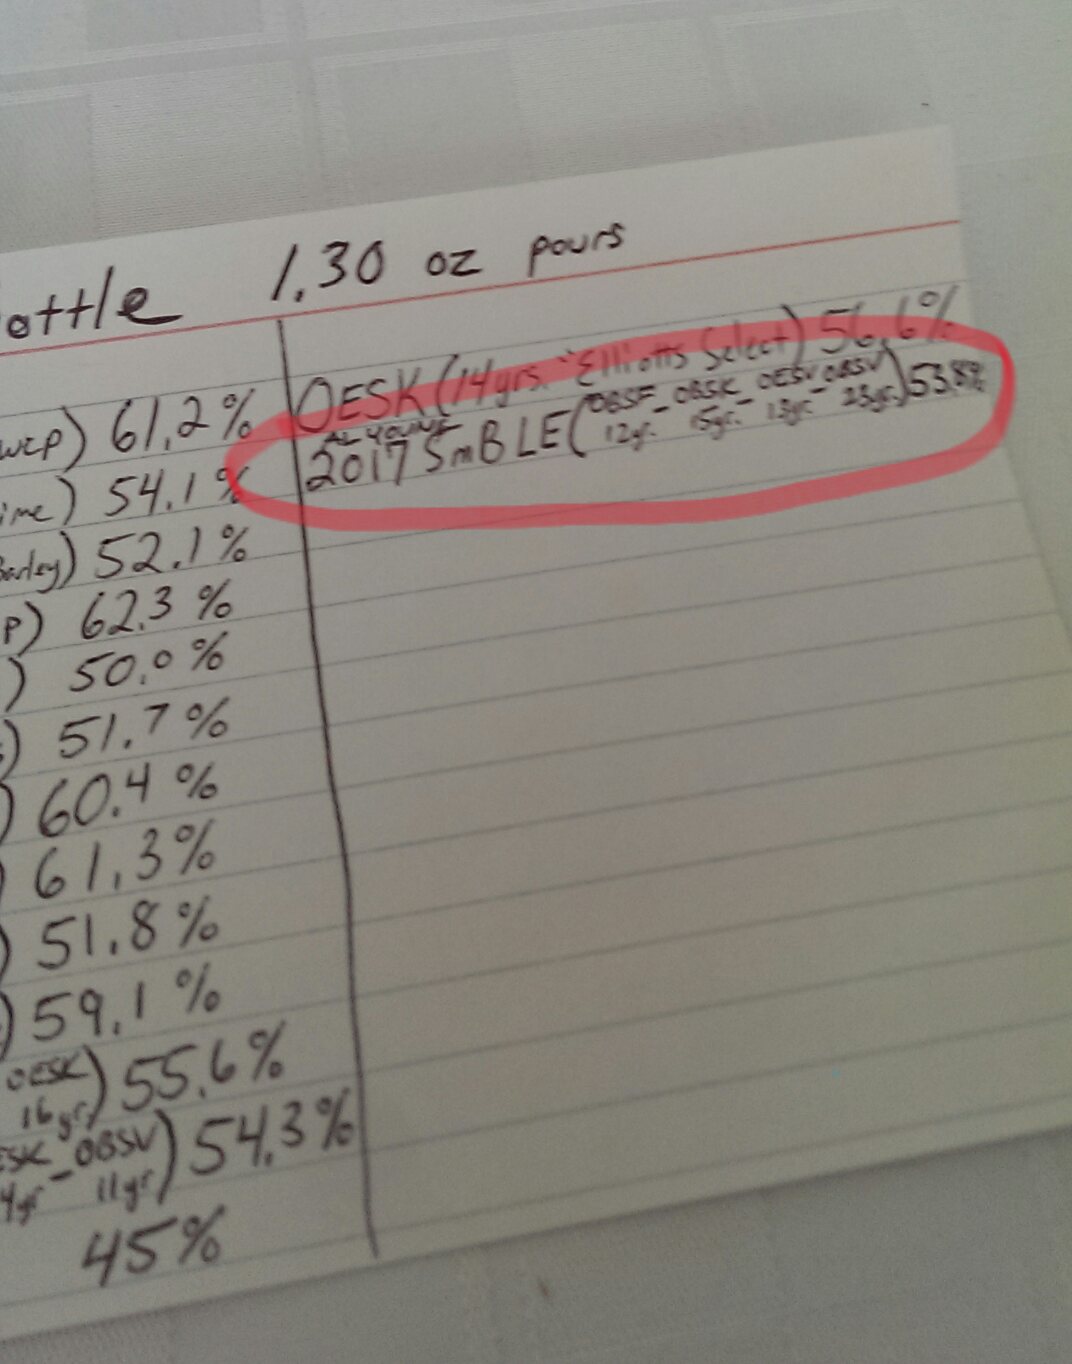 ottle 1.30 oz pours
wcp) 61.2%
ime) 54.1%
Barley) 52.1%
P) 62.3%
) 50.0%
) 51.7%
) 60.4%
) 61.3%
) 51.8%
) 59.1%
OESK
16yr.) 55.6%
ESK - OBSV
4yr 11yr) 54.3%
45%
OESK (14yrs. "Elliotts Select) 56.6%
AL YOUNG
2017 SmBLE (OBSF - OBSK - OESV - OBSV) 53.8%
12yr. 15yr. 13yr. 23yr.